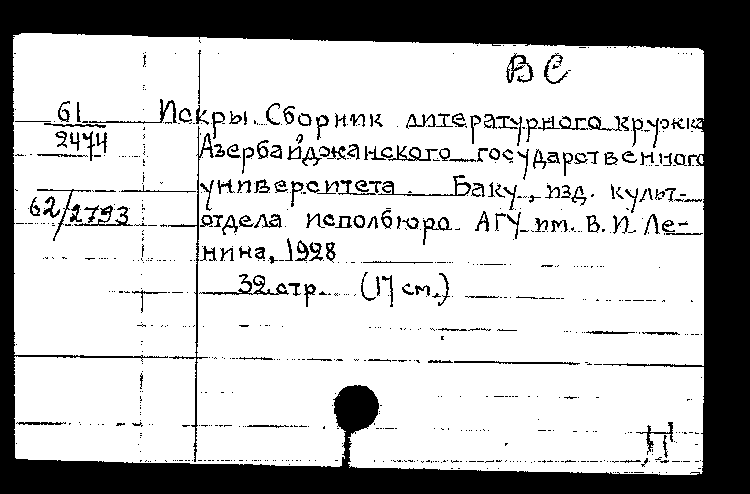 ВС
61
2474
Искры. Сборник литературного кружка
Азербайджанского государственного
университета. Баку, изд. культ-
62/2793
отдела исполбюро АГУ им. В. И. Ле-
нина, 1928
32 стр. (17 см.)